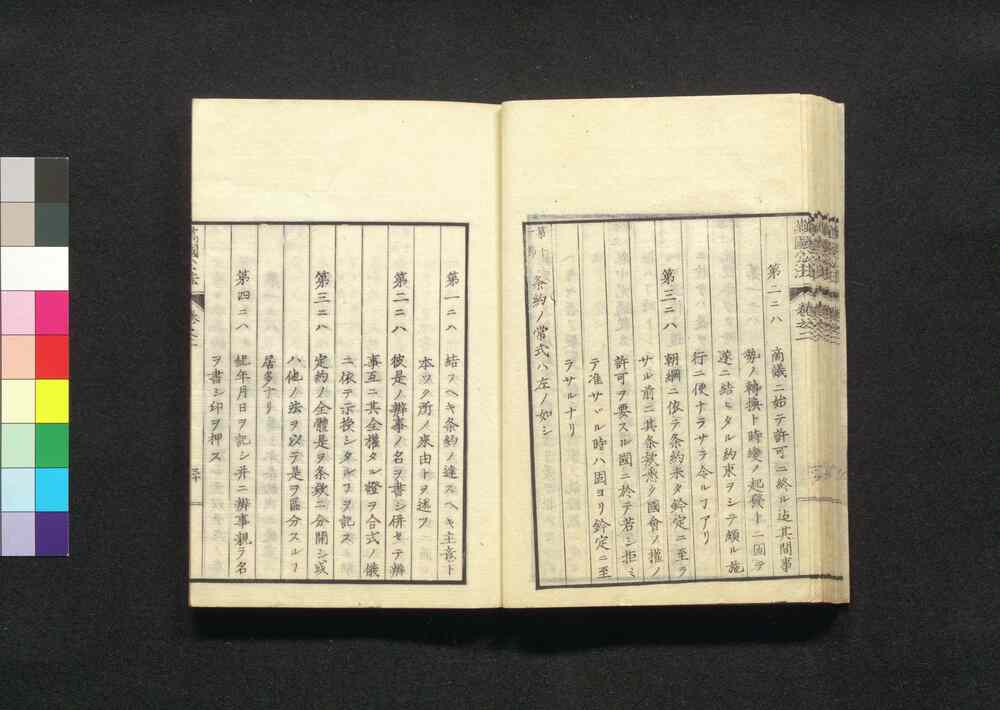 第二ニハ 商議ニ始テ許可ニ終ル迠其間事
勢ノ轉換ト時變ノ起發トニ因テ
遂ニ結ヒタル約束ヲシテ頗ル施
行ニ便ナラサラ令ルヿアリ
第三ニハ 朝綱ニ依テ条約未タ鈐定ニ至ラ
サル前ニ其条欵悉ク國會ノ
許可ヲ要スル國ニ於テ若シ拒ミ
テ准サヽル時ハ固ヨリ鈐定ニ至
ラサルナリ
条約ノ常式ハ左ノ如シ
第一ニハ 結フヘキ条約ノ達スヘキ主意ト
本ツク所ノ來由トヲ述フ
第二ニハ 彼是ノ辨事ノ名ヲ書シ併セテ辨
事互ニ其全權タル證ヲ合式ノ儀
ニ依テ示授シタルヿヲ記ス
第三ニハ 定約ノ全體是ヲ条欵ニ分開シ或
ハ他ノ法ヲ以テ是ヲ區分スルヿ
居多ナリ
第四ニハ 年月日ヲ記シ并ニ辨事親ラ名
ヲ書シ印ヲ押ス